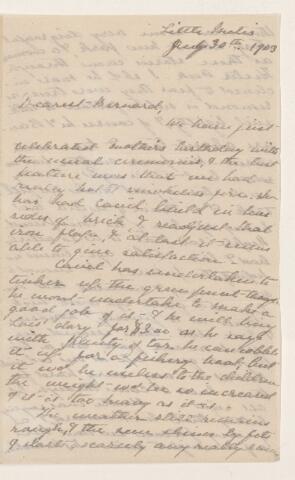 Little Metis
July 30th 1903
Dearest Bernard,
We have just
celebrated Mother's birthday with
the usual ceremonies, & the best
feature was that we had
has had David build in two
sides of brick & readjust that
iron plate, & at last it seems
able to give satisfaction.
David has undertaken to
tinker up the green punt tho'
he won't undertake to make a
good job of it - & he will buy
as he says
with plenty of tar he can make
it up for a fishing boat, but
it wd be useless to the children
the weight wd be so increased
& it is too heavy as it is.
The weather still remains
rough, & the sun shines by fits
& starts, scarcely any really